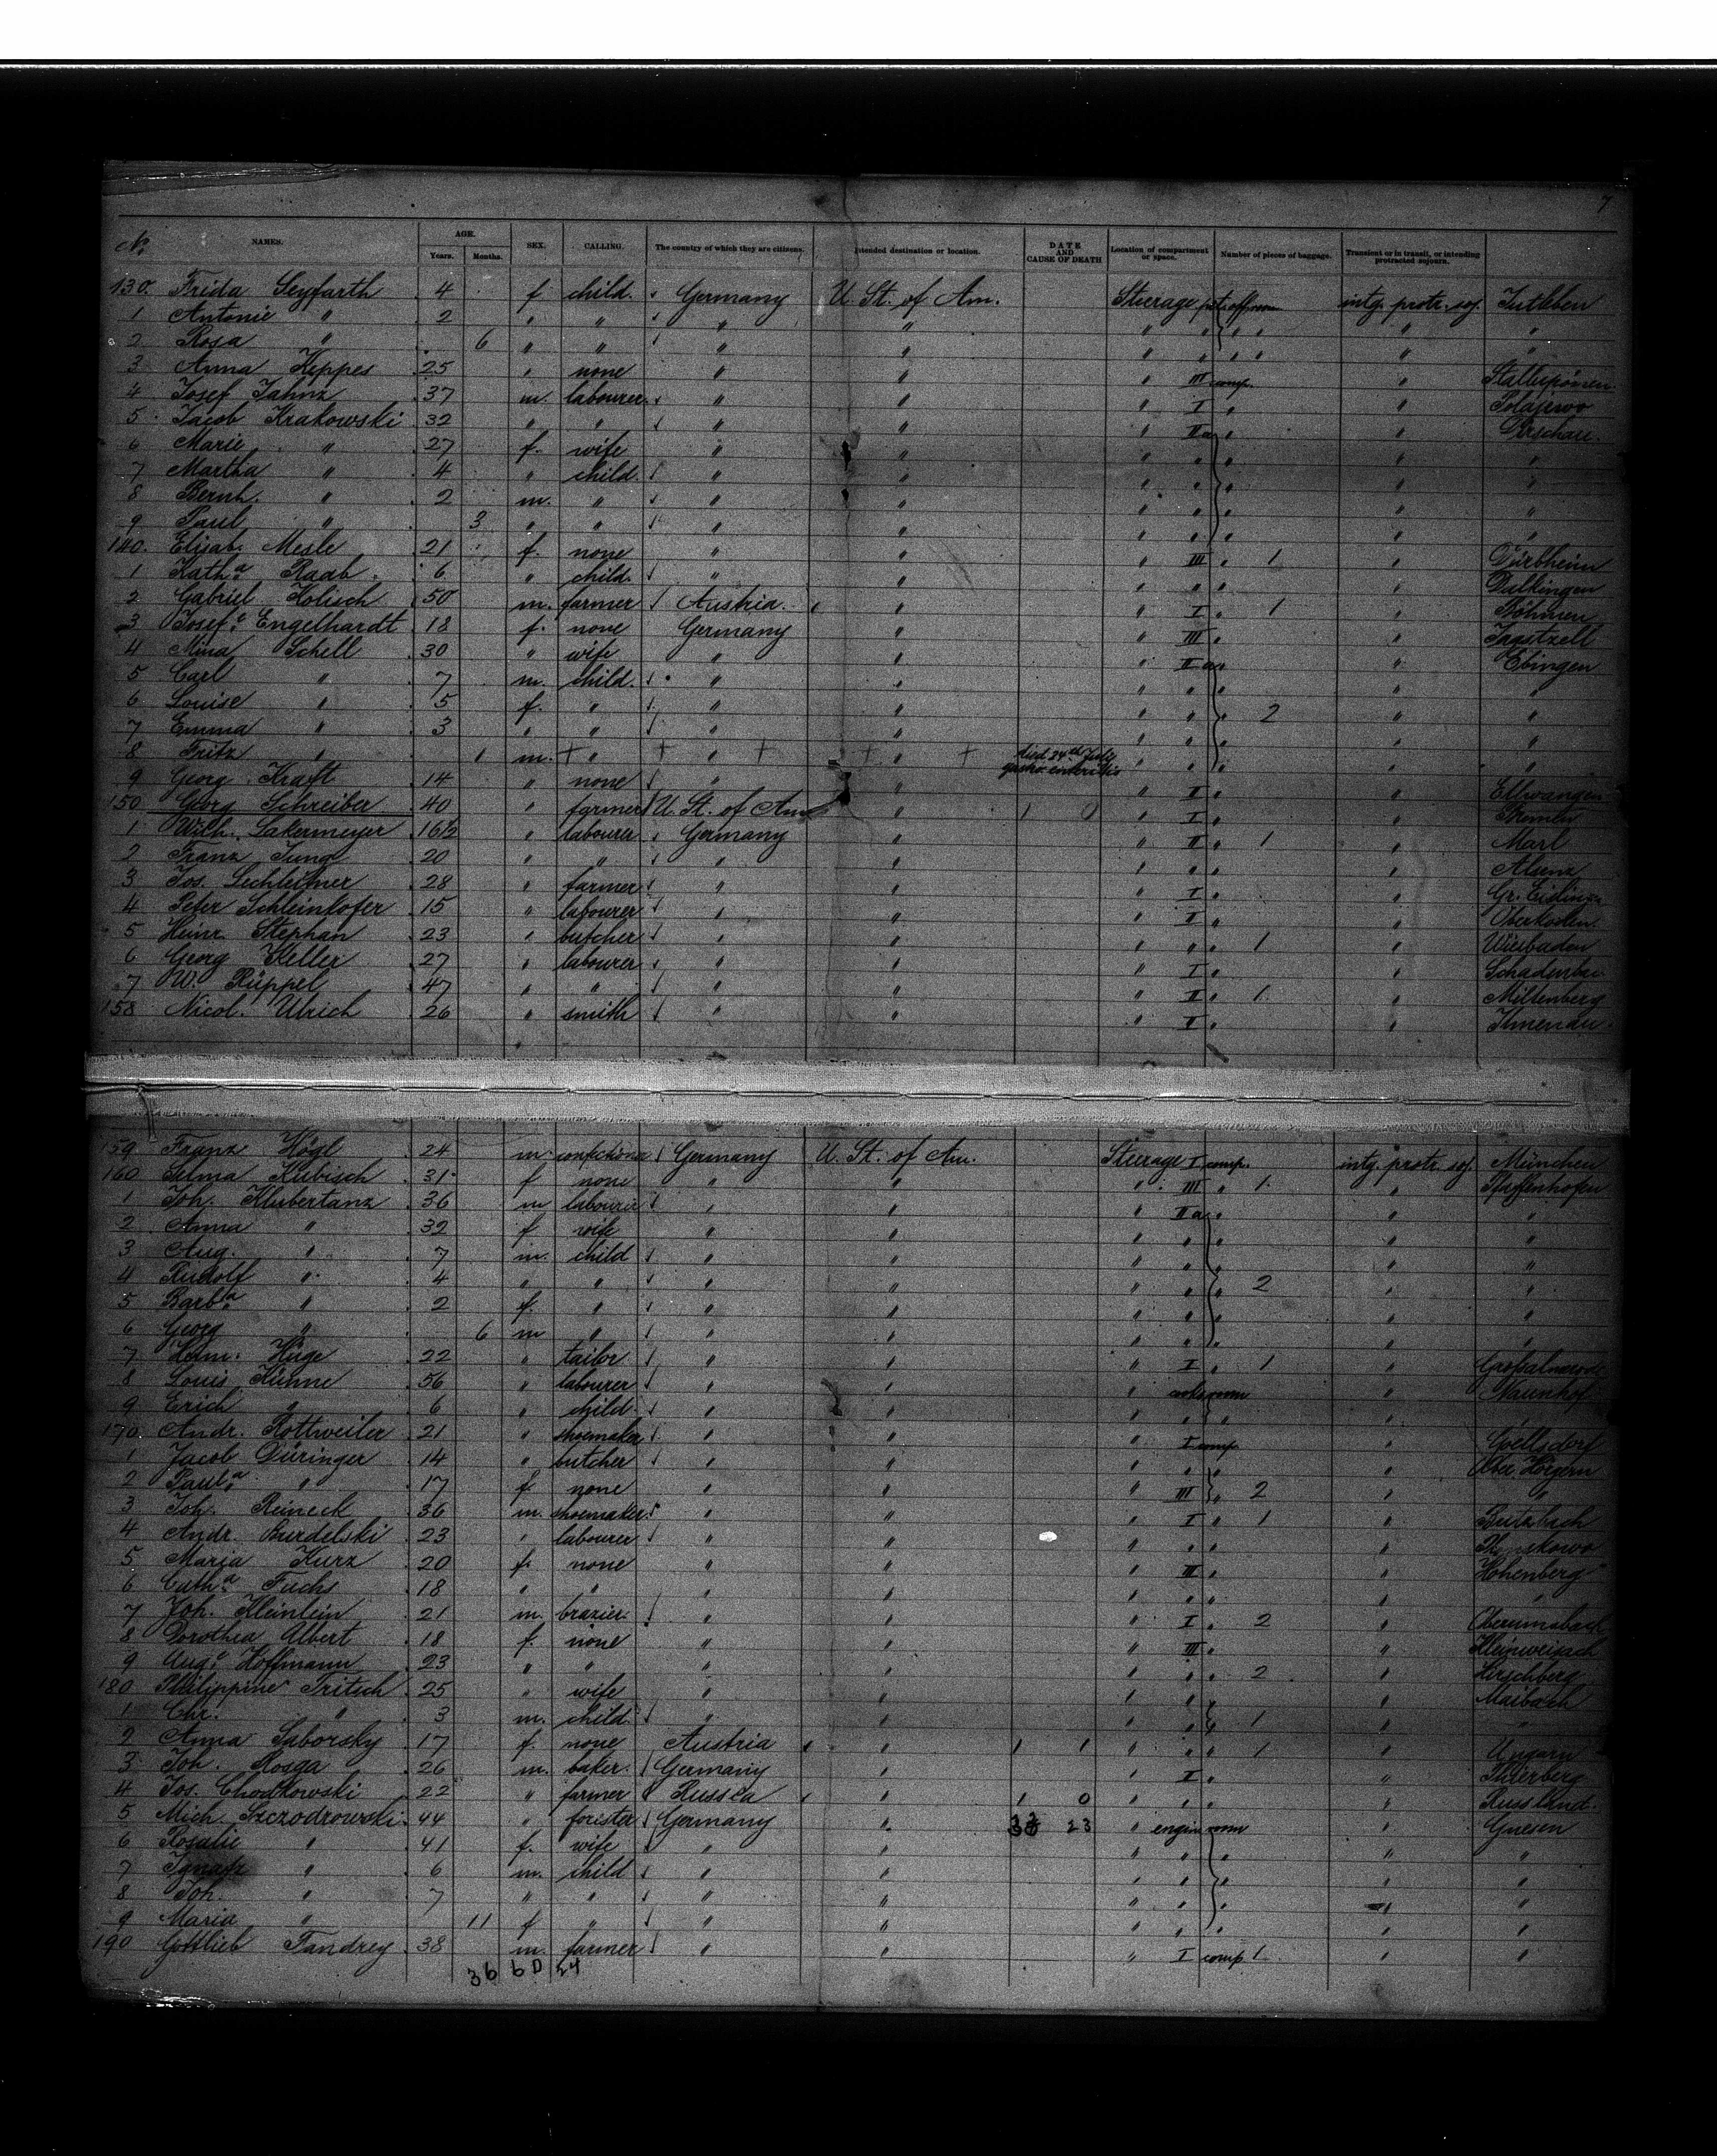 7
No. NAMES. AGE. Years. Months. SEX. CALLING. The country of which they are citizens. Intended destination or location. DATE AND CAUSE OF DEATH Location of compartment or space. Number of pieces of baggage. Transient or in transit, or intending protracted sojourn.
130. Frida Seyfarth 4 f child. Germany U. St. of Am. Steerage intg. protr. soj.
1 Antonie " 2 " " " " " " "
2 Rosa " 6 " " " " " " "
3 Anna Heppes 25 " none " " " III comp. " Stallupönen
4 Josef Jahnz 37 m. labourer " " " I " " Polajewo
5 Jacob Krakowski 32 " " " " " II a " " Dirschau.
6 Marie " 27 f. wife " " " " " " "
7 Martha " 4 " child. " " " " " " "
8 Bernh. " 2 m. " " " " " " " "
9 Paul " 3 " " " " " " " " "
140. Elisab. Mesle 21 f. none " " " III " 1 " Dürbheim
1 Kath.a Raab 6 " child. " " " " " " Dalkingen
2 Gabriel Kolisch 50 m. farmer Austria. " " I " 1 " Böhmen
3 Josef.a Engelhardt 18 f. none Germany " " III " " Jagstzell
4 Mina Schell 30 " wife " " " II a " " Ebingen
5 Carl " 7 m. child. " " " " " " "
6 Louise " 5 f. " " " " " " 2 " "
7 Emma " 3 " " " " " " " " "
8 Fritz " 1 m. + " + " + + " + died 24th July gastro enteritis " " " " "
9 Georg Kraft 14 " none " " " II " " Ellwangen
150 Georg Schreiber 40 " farmer U. St. of Am " 1 0 " I " " Bremen
1 Wilh. Lakermeyer 16½ " labourer Germany " " II " 1 " Marl
2 Franz Jung 20 " " " " " " " " Alsenz
3 Jos. Lechleitner 28 " farmer " " " I " "
4 Peter Schleinkofer 15 " labourer " " " II " " Oberkochen.
5 Heinr. Stephan 23 " butcher " " " " " 1 " Wiesbaden
6 Georg Keller 27 " labourer " " " I " "
7 W. Rüppel 47 " " " " " II " 1 " Miltenberg
158 Nicol. Ulrich 26 " smith " " " II " " Ilmenau.
159 Franz Högl 24 m. confectioner Germany U. St. of Am. Steerage I comp. intg. protr. soj. München
160 Selma Kubisch 31 f none " " " III " 1 " Pfaffenhofen
1 Joh. Klubertanz 36 m labourer " " " II a " " "
2 Anna " 32 f wife " " " " " " "
3 Aug. " 7 m. child " " " " " " "
4 Rudolf " 4 " " " " " " " 2 " "
5 Barb.a " 2 f. " " " " " " " "
6 Georg " 6 m " " " " " " " "
7 Herm. Hüge 22 " tailor " " " I " 1 " Großalmerode
8 Louis Kühne 56 " labourer " " " " Naunhof
9 Erich " 6 " child. " " " " " " "
170. Andr. Rottweiler 21 " shoemaker " " " I comp. "
1 Jacob Düringer 14 " butcher " " " " " " Ober Hörgern
2 Paul.a " 17 f. none " " " III " 2 " "
3 Joh. Reineck 36 m. shoemaker " " " I " 1 " Butzbach
4 Andr. Burdelski 23 " labourer " " " " " "
5 Maria Kurz 20 f. none " " " III " " Hohenberg
6 Cath.a Fuchs 18 " " " " " " " " "
7 Joh. Kleinlein 21 m. brazier. " " " I " 2 "
8 Dorothea Albert 18 f. none " " " III " " Kleinweisach
9 Aug.e Hoffmann 23 " " " " " " " 2 " Hirschberg
180 Philippine Fritsch 25 " wife " " " " " " Maibach
1 Chr. " 3 m. child " " " " " 1 " "
2 Anna Saborsky 17 f. none Austria " 1 1 " " " 1 " Ungarn
3 Joh. Rosga 26 m. baker. Germany " " I " "
4 Jos. Chodkowski 22 " farmer Russia " 1 0 " " " " Russland.
5 Mich. Szczodrowski 44 " forister Germany " 23 " engine room " Gnesen
6 Rosalie " 41 f. wife " " " " " " "
7 Ignatz " 6 m. child " " " " " " "
8 Joh. " 7 " " " " " " " " "
9 Maria " 11 f " " " " " " " "
190 Gottlieb Tandrey 38 m. farmer " " " I comp. 1 " "
36 6D 24